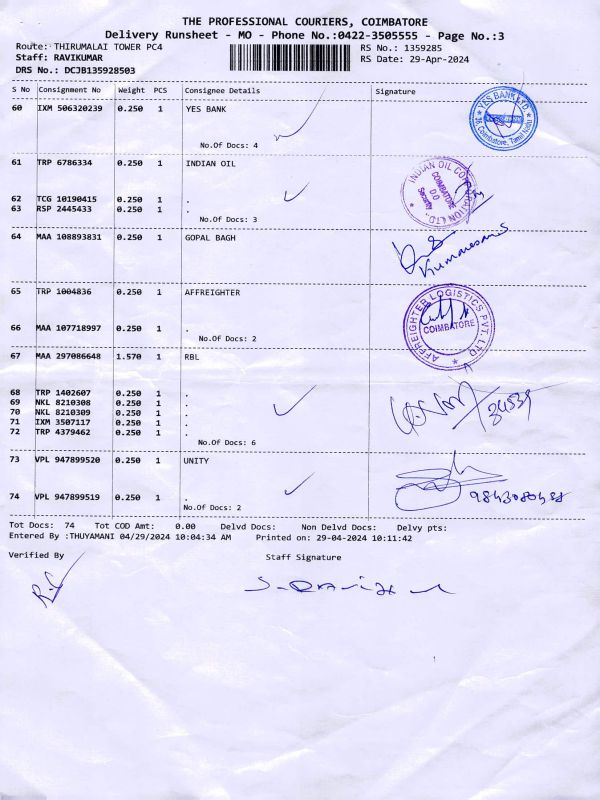 THE PROFESSIONAL COURIERS, COIMBATORE
Delivery Runsheet - MO - Phone No.:0422-3505555 - Page No.:3
Route: THIRUMALAI TOWER PC4 RS No.: 1359285
Staff: RAVIKUMAR RS Date: 29-Apr-2024
DRS No.: DCJB135928503
S No Consignment No Weight PCS Consignee Details Signature
60 IXM 506320239 0.250 1 YES BANK
YES BANK LTD. * Coimbatore, Tamil Nadu *
No.Of Docs: 4
61 TRP 6786334 0.250 1 INDIAN OIL
INDIAN OIL CORPORATION LTD. * COIMBATORE D.O Security
62 TCG 10190415 0.250 1 .
63 RSP 2445433 0.250 1 .
No.Of Docs: 3
64 MAA 108893831 0.250 1 GOPAL BAGH
Kumaresan
65 TRP 1004836 0.250 1 AFFREIGHTER
AFFREIGHTER LOGISTICS PVT. LTD * COIMBATORE
66 MAA 107718997 0.250 1 .
No.Of Docs: 2
67 MAA 297086648 1.570 1 RBL
68 TRP 1402607 0.250 1 .
69 NKL 8210308 0.250 1 .
70 NKL 8210309 0.250 1 .
71 IXM 3507117 0.250 1 .
72 TRP 4379462 0.250 1 .
No.Of Docs: 6
73 VPL 947899520 0.250 1 UNITY
74 VPL 947899519 0.250 1 .
No.Of Docs: 2
Tot Docs: 74 Tot COD Amt: 0.00 Delvd Docs: Non Delvd Docs: Delvy pts:
Entered By :THUYAMANI 04/29/2024 10:04:34 AM Printed on: 29-04-2024 10:11:42
Verified By Staff Signature